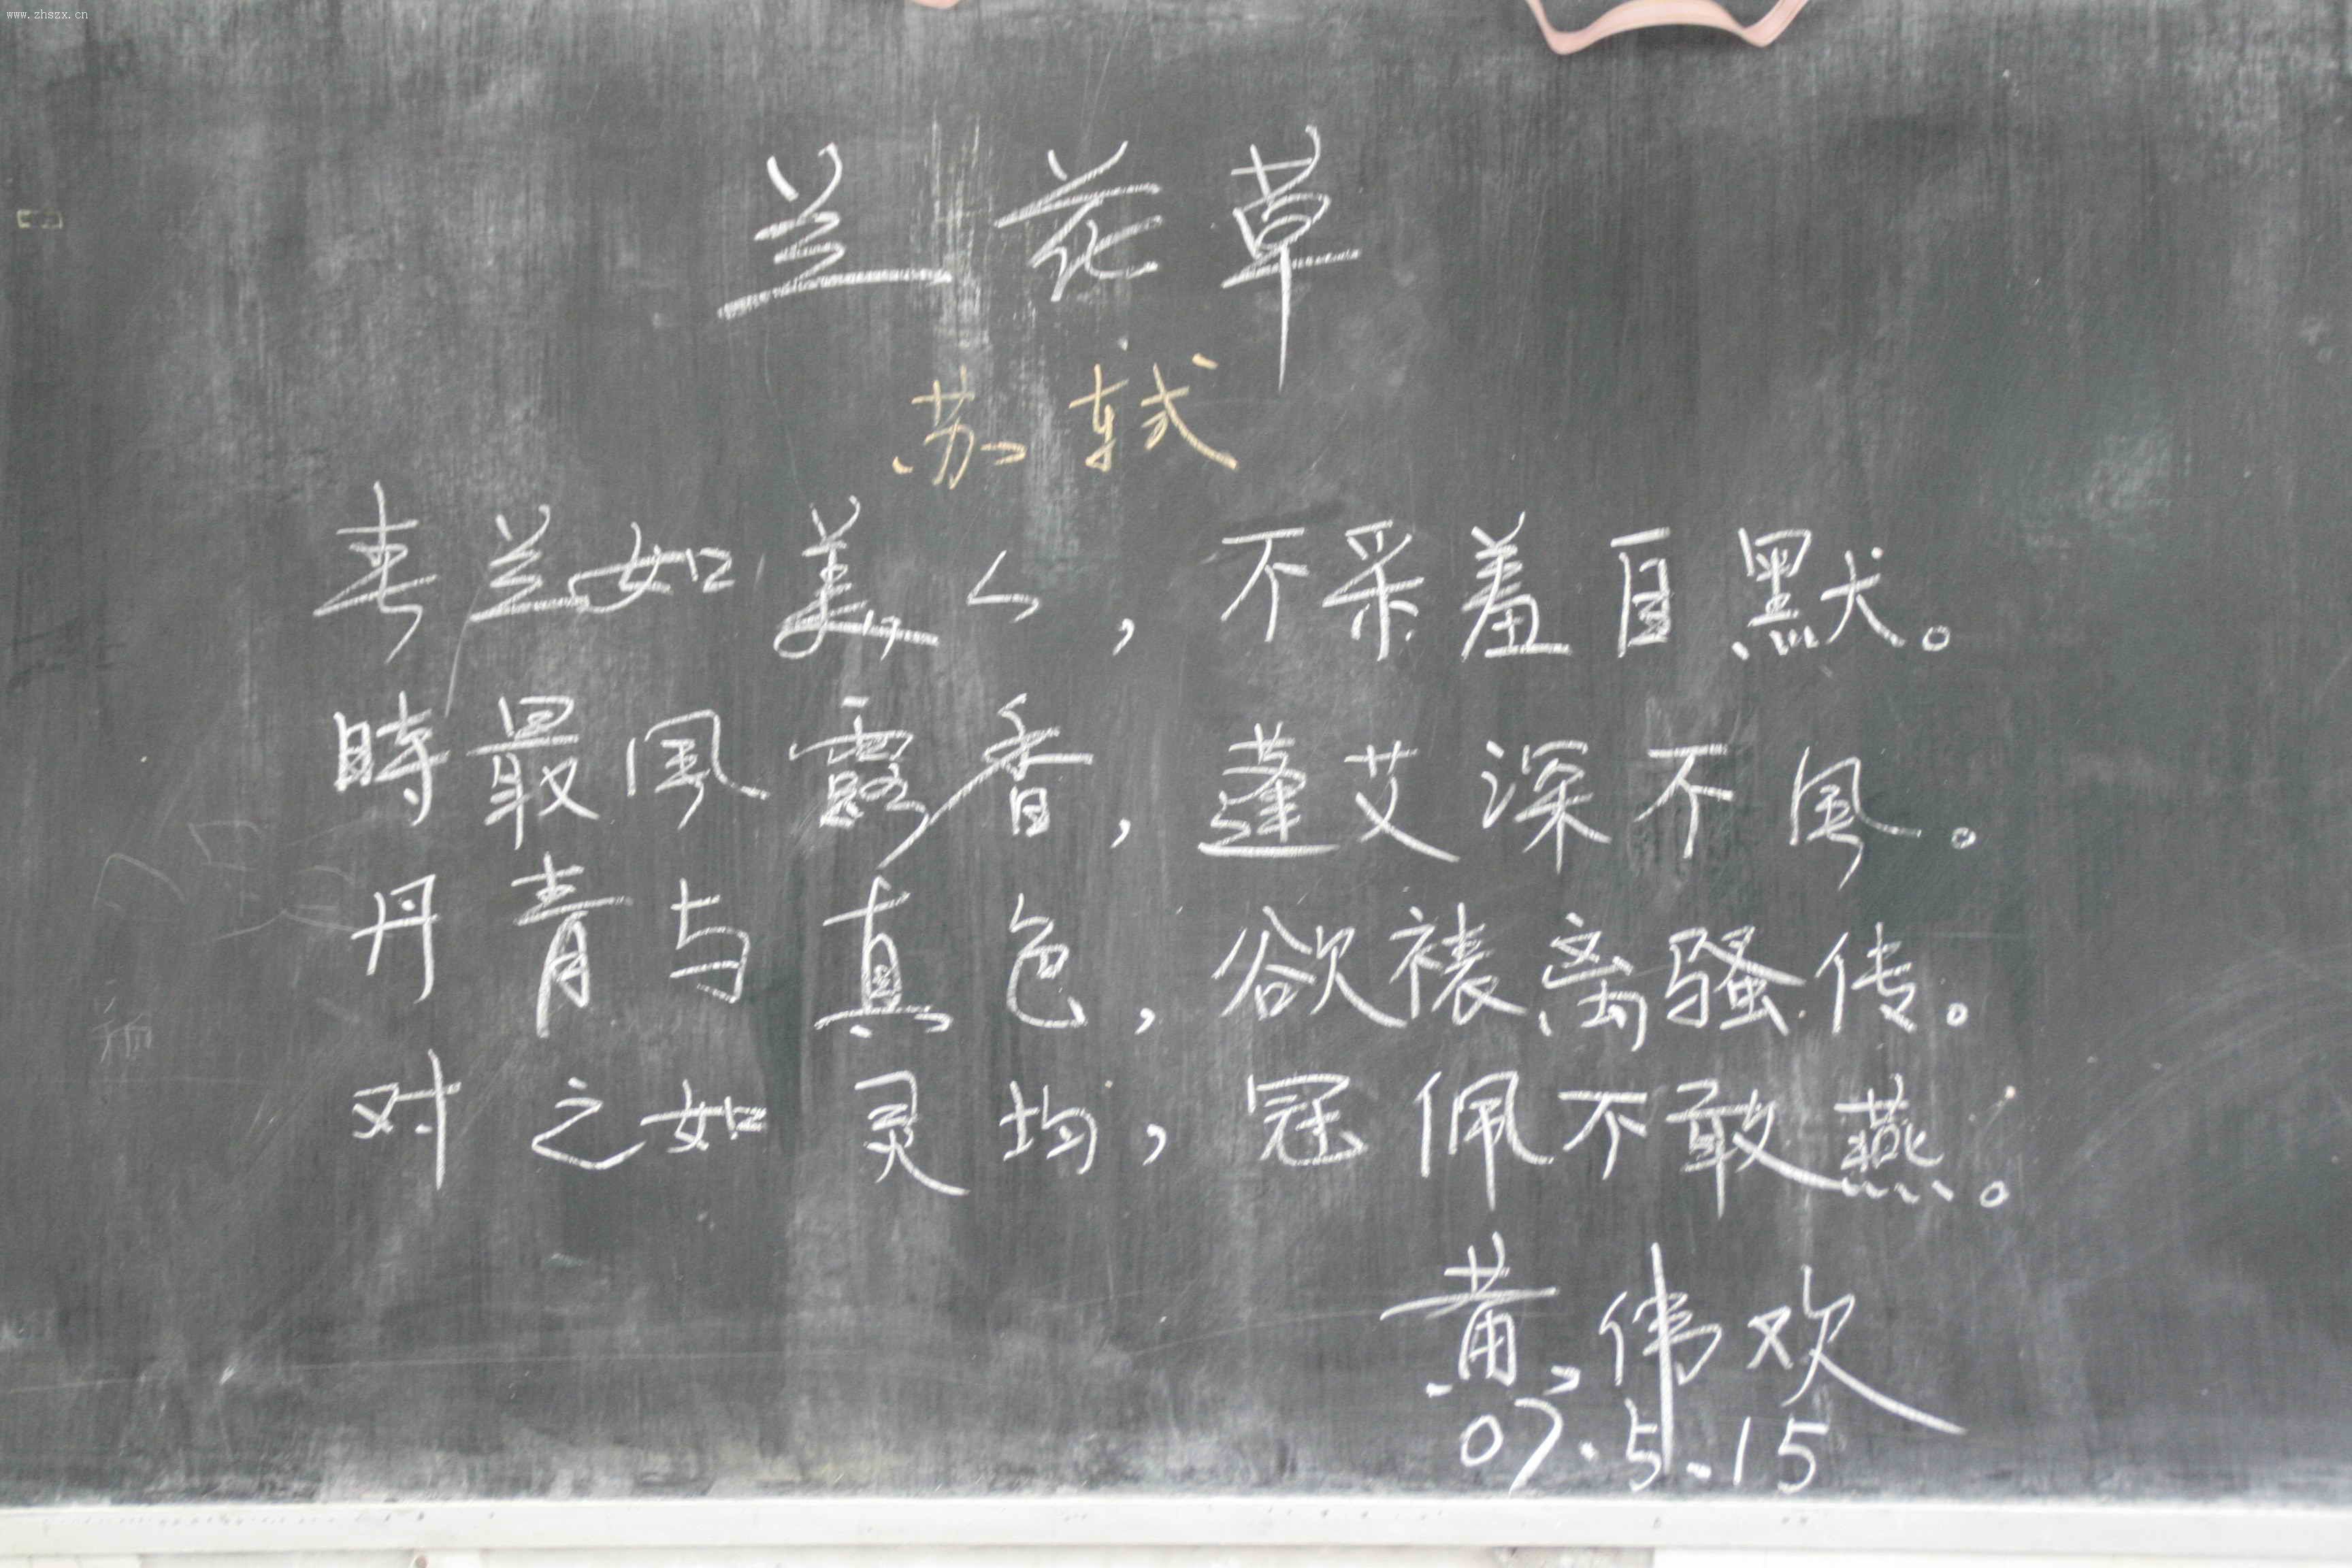 www.zhszx.cn
兰花草
苏轼
春兰如美人，不采羞自默。
時最風露香，蓬艾深不風。
丹青与真色，欲裱离骚传。
对之如灵均，冠佩不敢燕。
黄伟欢
07.5.15